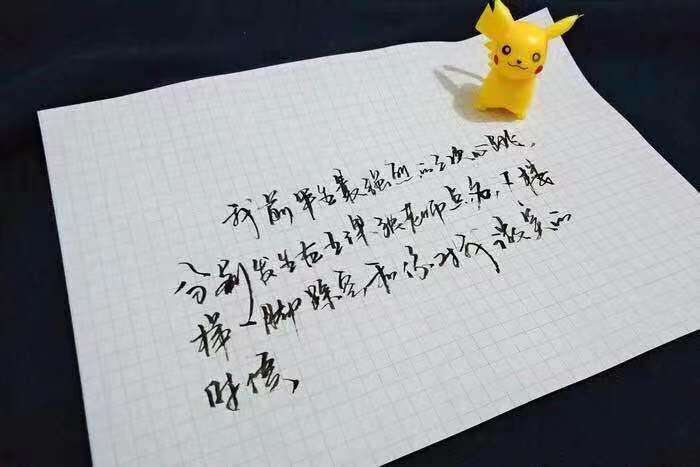 我前半生最强烈的三次心跳，
分别发生在上课被老师点名，下楼
梯一脚踩空和你对我微笑的
时候、